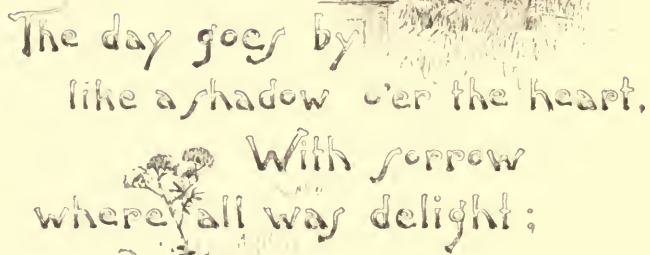 The day goes by
like a shadow o'er the heart,
With sorrow
where all was delight;